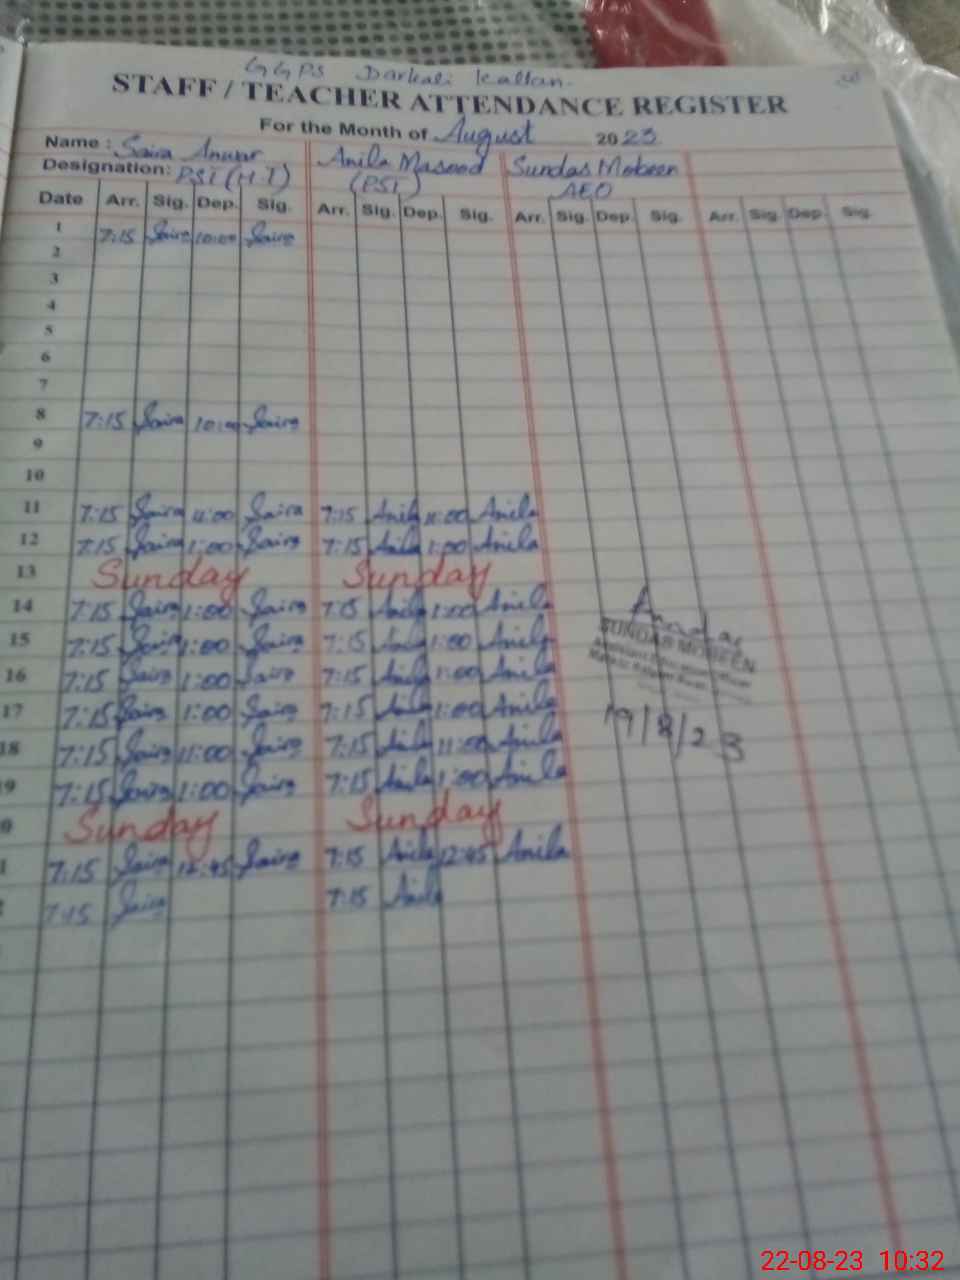 GGPS Darkali Kallan.
STAFF / TEACHER ATTENDANCE REGISTER
For the Month of August 2023
Name : Saira Anwar Anila Masood Sundas Mobeen
Designation: PST (H.T) (PST) AEO
Date Arr. Sig. Dep. Sig. Arr. Sig. Dep. Sig. Arr. Sig. Dep. Sig. Arr. Sig. Dep. Sig.
1 7:15 Saira 10:00 Saira
2
3
4
5
6
7
8 7:15 Saira 10:00 Saira
9
10
11 7:15 Saira 11:00 Saira 7:15 Anila 11:00 Anila
12 7:15 Saira 1:00 Saira 7:15 Anila 1:00 Anila
13 Sunday Sunday
14 7:15 Saira 1:00 Saira 7:15 Anila 1:00 Anila
15 7:15 Saira 1:00 Saira 7:15 Anila 1:00 Anila
SUNDAS MOBEEN
16 7:15 Saira 1:00 Saira 7:15 Anila 1:00 Anila
17 7:15 Saira 1:00 Saira 7:15 Anila 1:00 Anila
19/8/23
18 7:15 Saira 11:00 Saira 7:15 Anila 11:00 Anila
9 7:15 Saira 1:00 Saira 7:15 Anila 1:00 Anila
0 Sunday Sunday
1 7:15 Saira 12:45 Saira 7:15 Anila 12:45 Anila
7:15 Saira 7:15 Anila
22-08-23 10:32